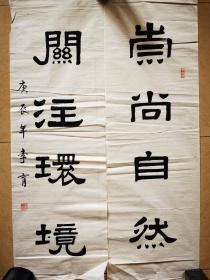 崇尚自然
關注環境
庚辰年李育